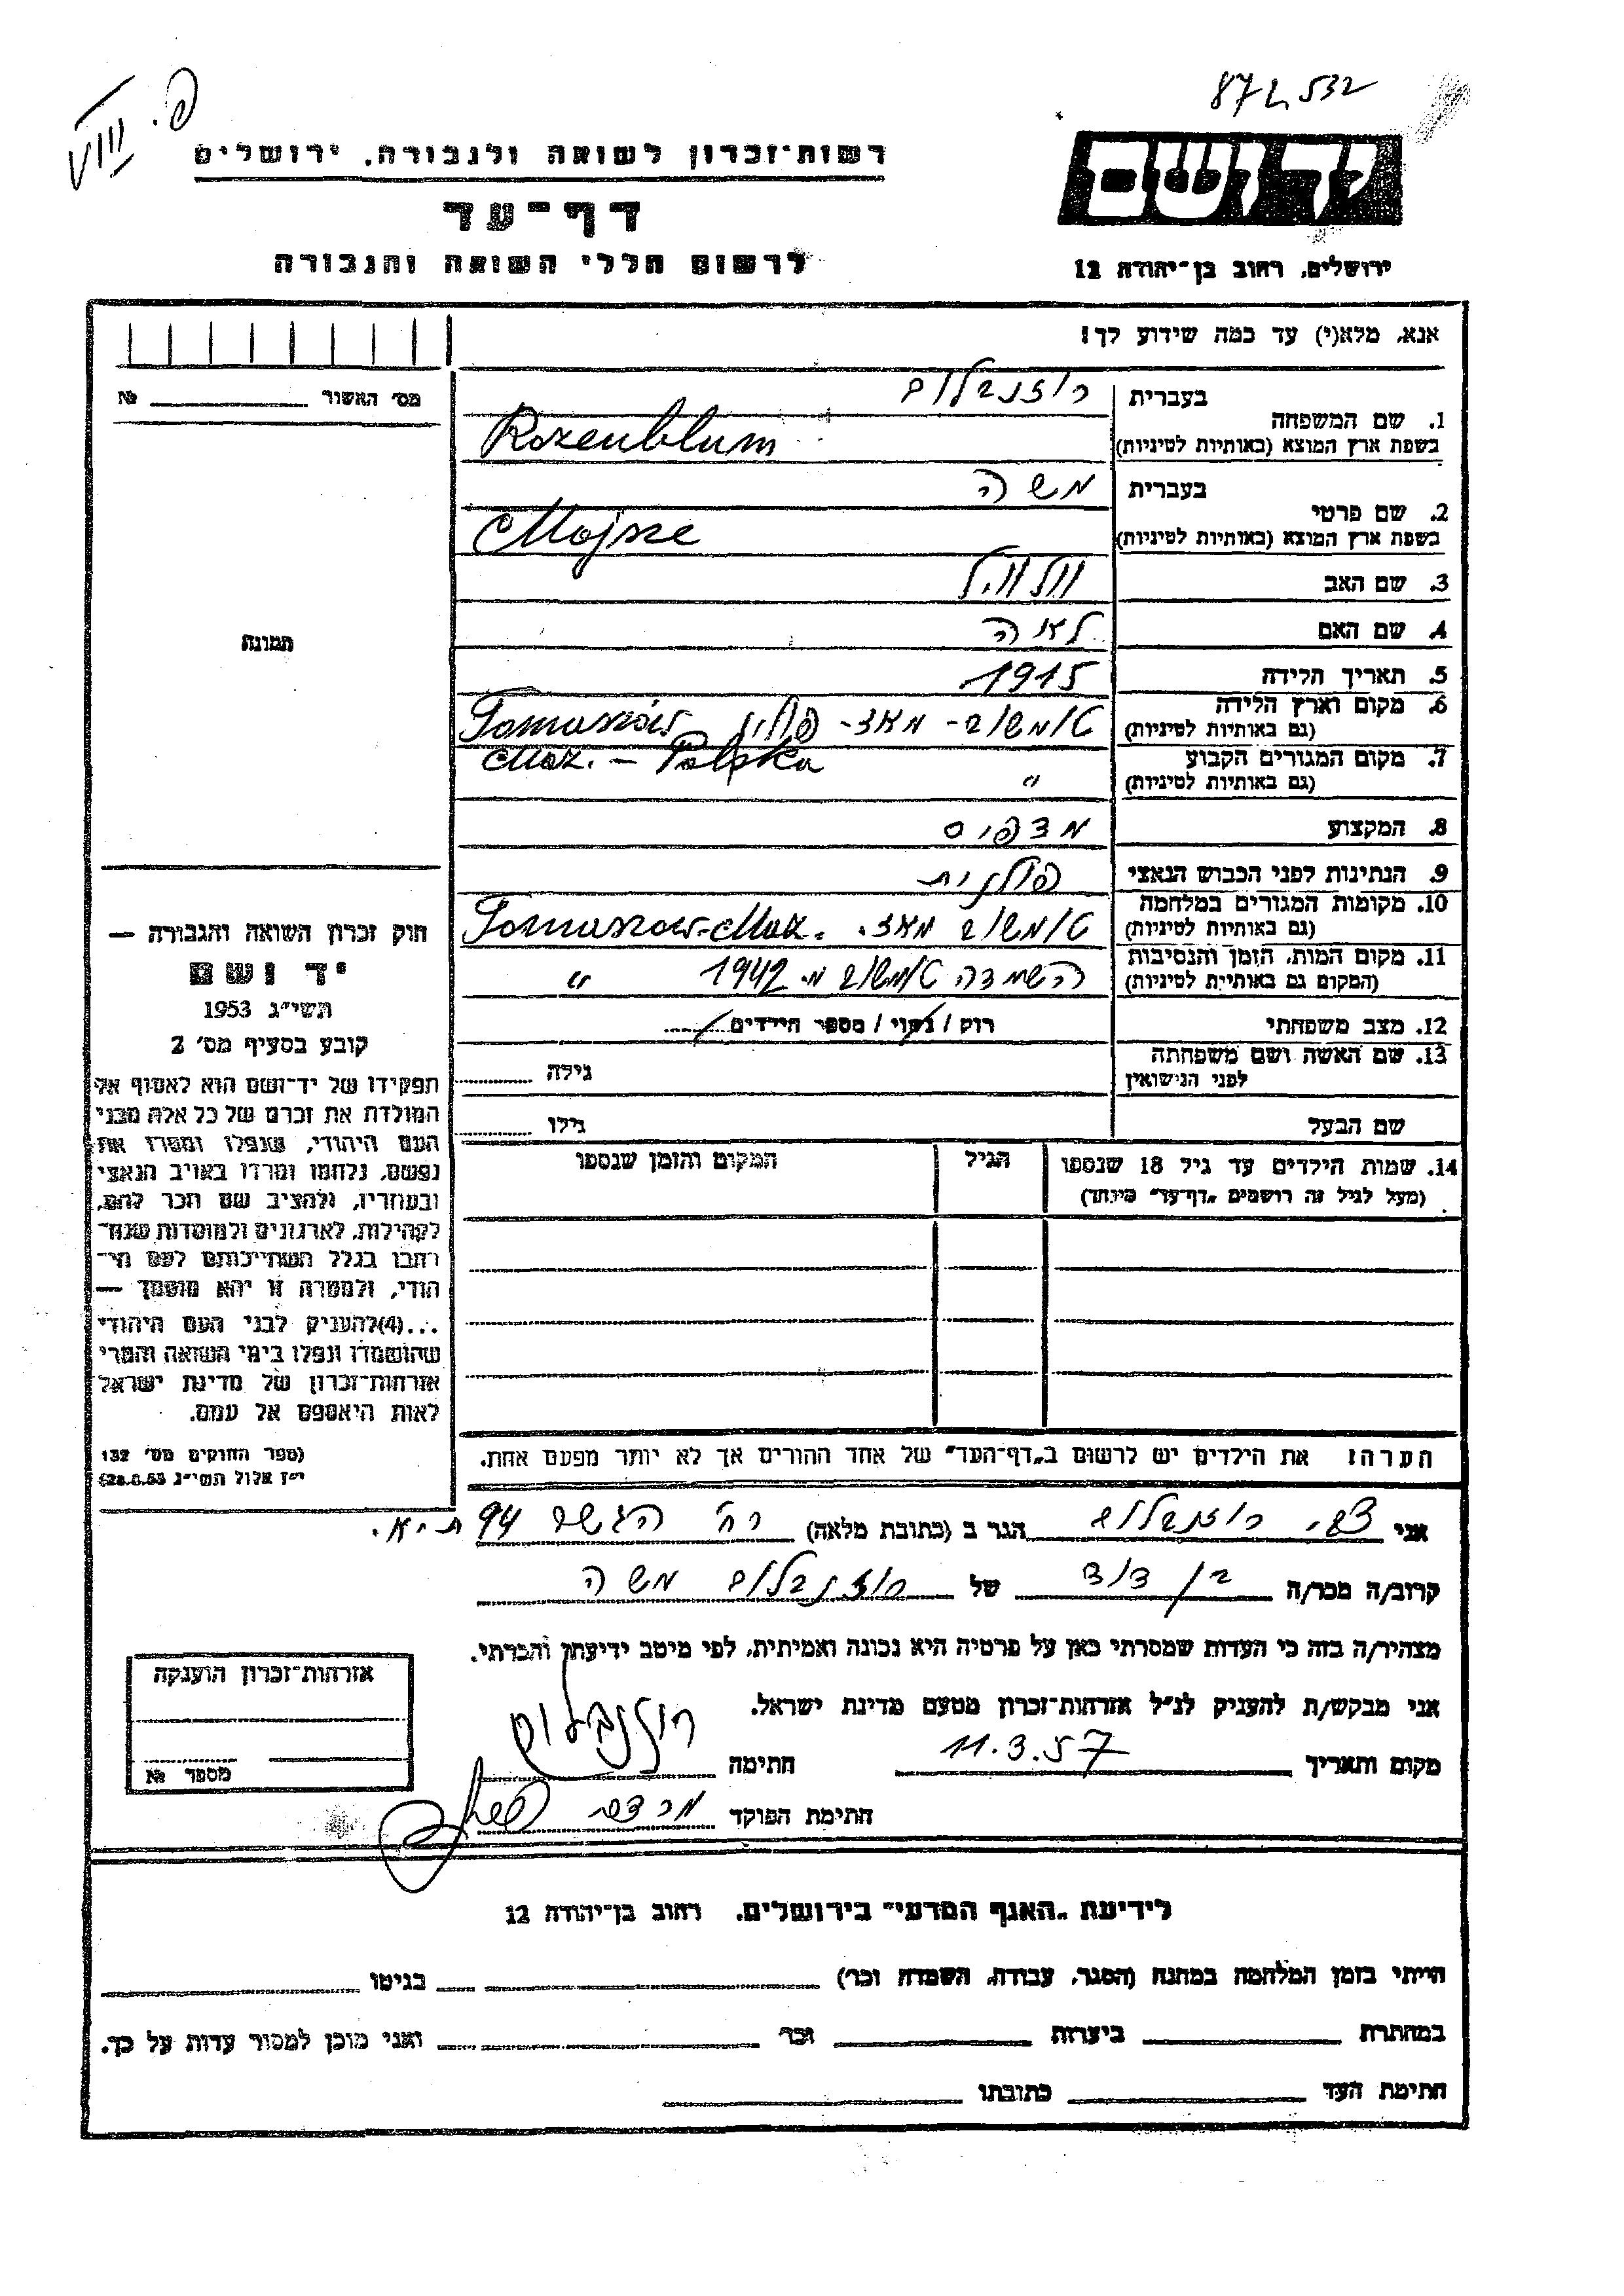 פ. VIII
872532
רשות־זכרון לשואה ולגבורה, ירושלים
דף־עד
לרשום חללי השואה והגבורה
יד ושם
ירושלים, רחוב בן־יהודה 12
אנא, מלא(י) עד כמה שידוע לך!
מס׳ האשור № 
1. שם המשפחה
בעברית רוזנבלום
בשפת ארץ המוצא (באותיות לטיניות) Rozenblum
2. שם פרטי
בעברית משה
בשפת ארץ המוצא (באותיות לטיניות) Mojsze
3. שם האב
4. שם האם לאה
5. תאריך הלידה 1915
6. מקום וארץ הלידה
(גם באותיות לטיניות) טומשוב - מאז - פולין Tomaszów
Maz. - Polska
7. מקום המגורים הקבוע
(גם באותיות לטיניות) "
8. המקצוע מדפיס
9. הנתינות לפני הכבוש הנאצי פולנית
10. מקומות המגורים במלחמה
(גם באותיות לטיניות) טומשוב מאז. Tomaszow-Maz.
11. מקום המות, הזמן והנסיבות
(המקום גם באותיות לטיניות) השמדה טומשוב מ. 1942 "
12. מצב משפחתי רוק / נשוי / מספר הילדים
13. שם האשה ושם משפחתה
לפני הנישואין
גילה
שם הבעל גילו
14. שמות הילדים עד גיל 18 שנספו
(מעל לגיל זה רושמים „דף־עד" מיוחד)
הגיל
המקום והזמן שנספו
תמונה
חוק זכרון השואה והגבורה —
יד ושם
תשי״ג 1953
קובע בסעיף מס׳ 2
תפקידו של יד־ושם הוא לאסוף אל
המולדת את זכרם של כל אלה מבני
העם היהודי, שנפלו ומסרו את
נפשם, נלחמו ומרדו באויב הנאצי
ובעוזריו, ולהציב שם וזכר להם,
לקהילות, לארגונים ולמוסדות שנח־
רבו בגלל השתייכותם לעם הי־
הודי, ולמטרה זו יהא מוסמך —
...(4)להעניק לבני העם היהודי
שהושמדו ונפלו בימי השואה והמרי
אזרחות־זכרון של מדינת ישראל
לאות היאספם אל עמם.
(ספר החוקים מס׳ 132
י״ז אלול תשי״ג 28.8.53)
הערה: את הילדים יש לרשום ב„דף־העד" של אחד ההורים אך לא יותר מפעם אחת.
אני צבי רוזנבלום הגר ב (כתובת מלאה) רח׳ הגשר 94 ת.א.
קרוב/ה מכר/ה בן דוד של רוזנבלום משה
מצהיר/ה בזה כי העדות שמסרתי כאן על פרטיה היא נכונה ואמיתית, לפי מיטב ידיעתי והכרתי.
אני מבקש/ת להעניק לנ״ל אזרחות־זכרון מטעם מדינת ישראל.
מקום ותאריך 11.3.57 חתימה רוזנבלום
חתימת הפוקד
אזרחות־זכרון הוענקה
מספר №
לידיעת „האגף המדעי" בירושלים, רחוב בן־יהודה 12
הייתי בזמן המלחמה במחנה (הסגר, עבודה, השמדה וכו׳) בגיטו
במחתרת ביערות וכו׳ ואני מוכן למסור עדות על כך.
חתימת העד כתובתו